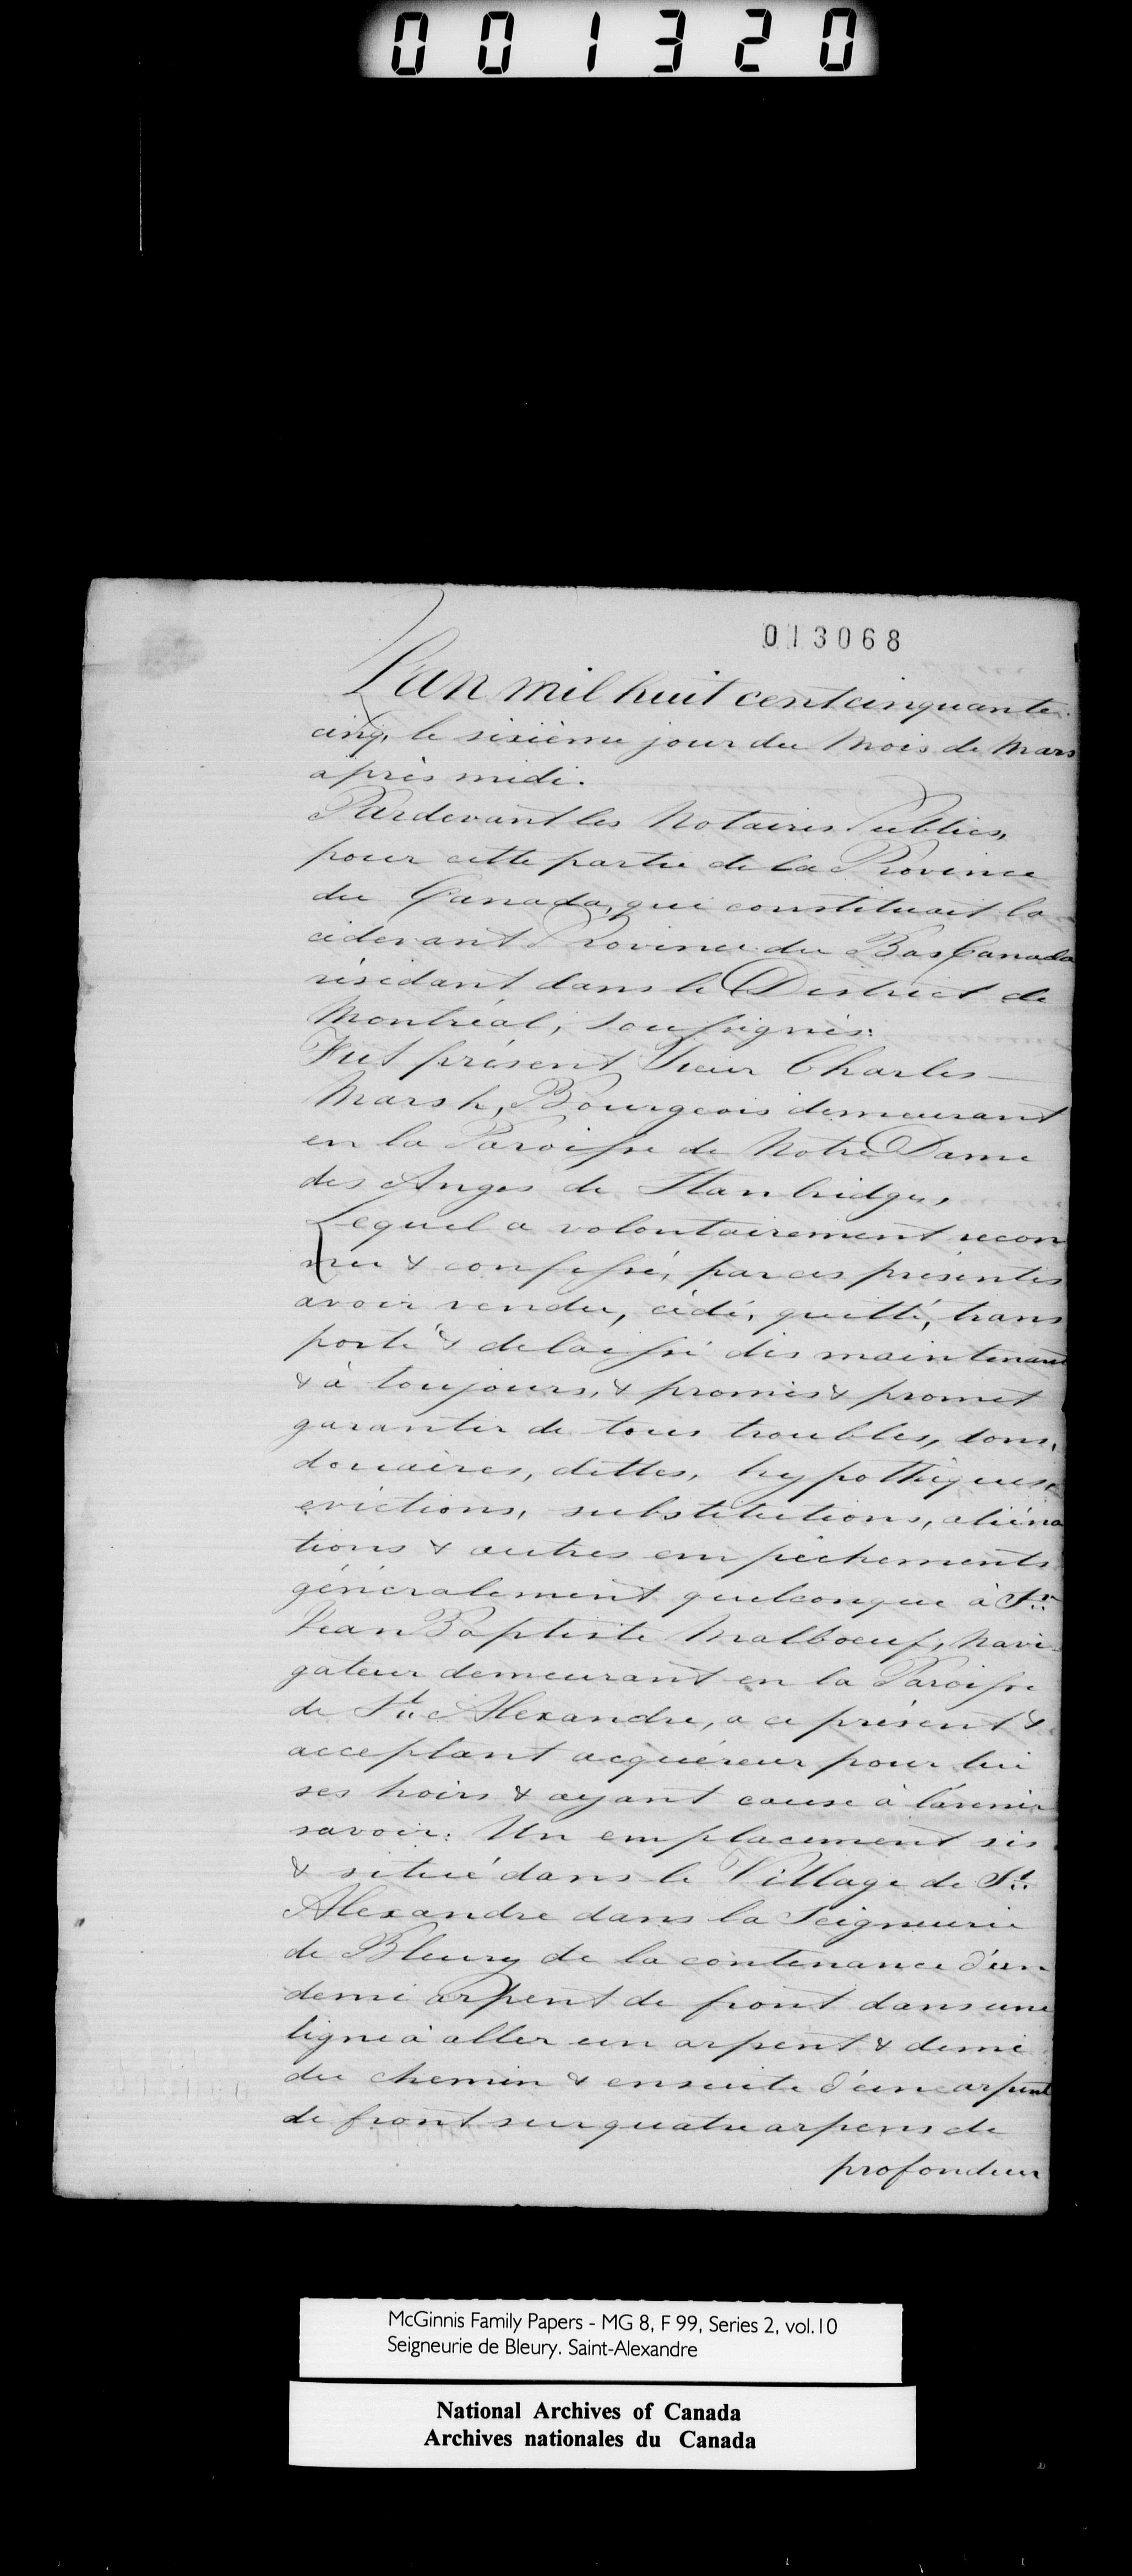 001320
013068
L'an mil huit cent cinquante
cinq, le sixième jour du mois de Mars
après midi.
Pardevant les Notaires Publics,
pour cette partie de la Province
du Canada, qui constituait la
cidevant Province du Bas Canada
résidant dans le District de
Montréal, soussignés.
Fut présent Sieur Charles
Marsh, Bourgeois demeurant
en la Paroisse de Notre Dame
des Anges de Stanbridge,
Lequel a volontairement recon
nu & confessé, par ces présentes
avoir vendu, cédé, quitté, trans
porté & delaissé dès maintenant
& à toujours, & promis & promet
garantir de tous troubles, dons,
douaires, dettes, hypothèques,
evictions, substitutions, aliéna
tions & autres empêchements
généralement quelconque à Sr.
Jean Baptiste Malboeuf, Navi-
gateur demeurant en la Paroisse
de St. Alexandre, a ce présent &
acceptant acquéreur pour lui
ses hoirs & ayant cause à l'avenir
savoir: Un emplacement sis
& situé dans le Village de St.
Alexandre dans la Seigneurie
de Bleury de la contenance d'un
demi arpent de front dans une
ligne à aller un arpent & demi
du chemin & ensuite d'un arpent
de front sur quatre arpens de
profondeur
McGinnis Family Papers - MG 8, F 99, Series 2, vol.10
Seigneurie de Bleury. Saint-Alexandre
National Archives of Canada
Archives nationales du Canada